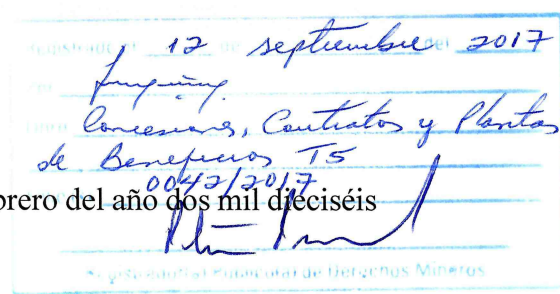 12 de septiembre del 2017
Concesiones, Contratos y Plantas
de Beneficios T5
0042/2017
brero del año dos mil dieciséis
de Derechos Mineros